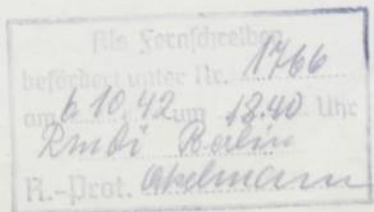 Als Fernschreiben
befördert unter Nr. 1766
am 6.10.42 um 18.40 Uhr
Rmbi Berlin
R.-Prot.